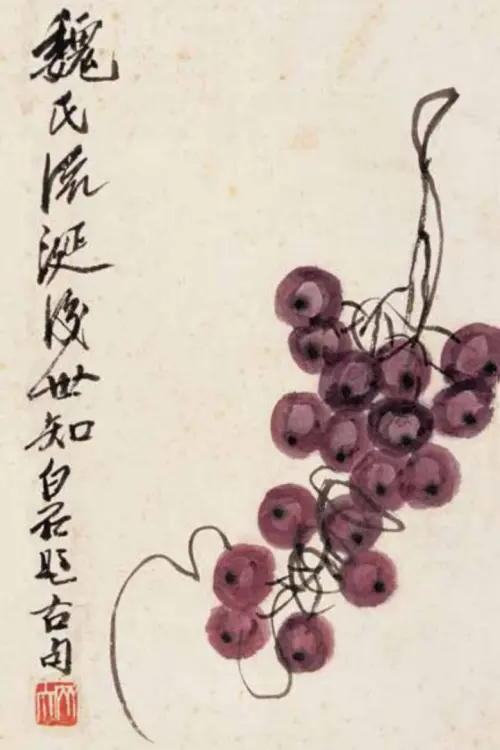 魏氏流涎後世知白石題古句